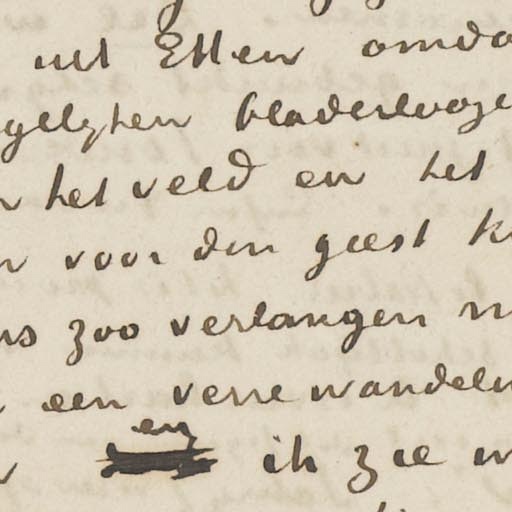 uit Etten omda
gelyken bladerlooze
het veld en het
voor den geest k
zoo verlangen n
een verre wandelin
en
ik zie w